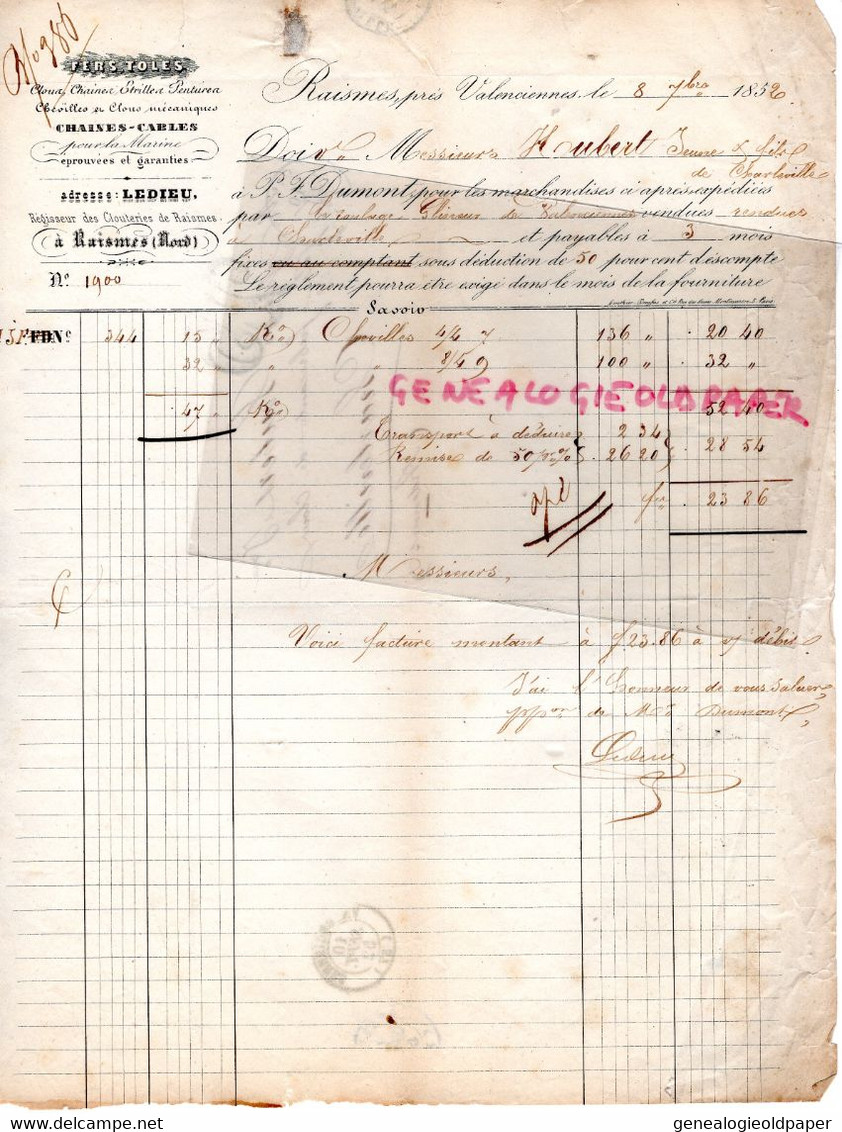 Nº 986
FERS, TOLES,
Clous, Chaines, Etrilles, Pentures
Chevilles & Clous mécaniques
CHAINES-CABLES
pour la Marine
eprouvées et garanties
adresse: LEDIEU,
Régisseur des Clouteries de Raismes,
à Raismes (Nord)
Nº 1900
Raismes, près Valenciennes, le 8 7bre 1852
Doivt Messieurs Hubert Jeune & fils
de Charleville
à P. F. Dumont, pour les marchandises ci après expédiées
par Glineur de Valenciennes vendues rendues
à Charleville et payables à 3 mois
fixes ou au comptant sous déduction de 50 pour cent d'escompte
Le règlement pourra être exigé dans le mois de la fourniture
Savoir
FDNº 344 15 " Kos Chevilles 4/4 7 136 " 20 40
32 " " " 8/4 9 100 " 32 "
GENEALOGIEOLDPAPER
47 " Kos 52 40
Transport à déduire 2 34
Remise de 50 p% 26 20 28 54
fr 23 86
Messieurs,
Voici facture montant à f 23.86 à v/ débit.
J'ai l'honneur de vous saluer,
ppon de Mr Dumont,
Ledieu
genealogieoldpaper